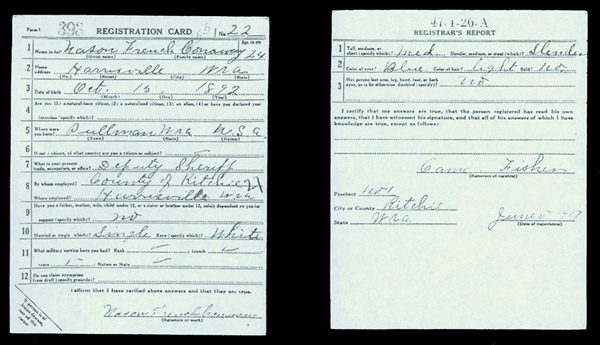 Form 1 393 REGISTRATION CARD No. 22
1 Name in full Nason French Conaway 24
(Given name) (Family name) Age, in yrs.
2 Home address Harrisville W Va
(No.) (Street) (City) (State)
3 Date of birth Oct. 15, 1892
(Month) (Day) (Year)
4 Are you (1) a natural-born citizen, (2) a naturalized citizen, (3) an alien, (4) or have you declared your
intention (specify which)?
5 Where were you born? Pullman W Va U.S.A
(Town) (State) (Nation)
6 If not a citizen, of what country are you a citizen or subject?
7 What is your present trade, occupation, or office? Deputy Sheriff
8 By whom employed? County of Ritchie
Where employed? Harrisville W Va
9 Have you a father, mother, wife, child under 12, or a sister or brother under 12, solely dependent on you for
support (specify which)? no
10 Married or single (which)? Single Race (specify which)? White
11 What military service have you had? Rank ; branch
years ; Nation or State
12 Do you claim exemption from draft (specify grounds)?
I affirm that I have verified above answers and that they are true.
Nason French Conaway
(Signature or mark)
If person is of African descent, cut off this corner
47-1-26-A
REGISTRAR'S REPORT
1 Tall, medium, or short (specify which)? Med. Slender, medium, or stout (which)? Slender
2 Color of eyes? Blue Color of hair? light Bald? No
3 Has person lost arm, leg, hand, foot, or both eyes, or is he otherwise disabled (specify)? No
I certify that my answers are true, that the person registered has read his own
answers, that I have witnessed his signature, and that all of his answers of which I have
knowledge are true, except as follows:
Fisher
(Signature of registrar)
Precinct No 1
City or County Ritchie
State W Va June 5 1917
(Date of registration)